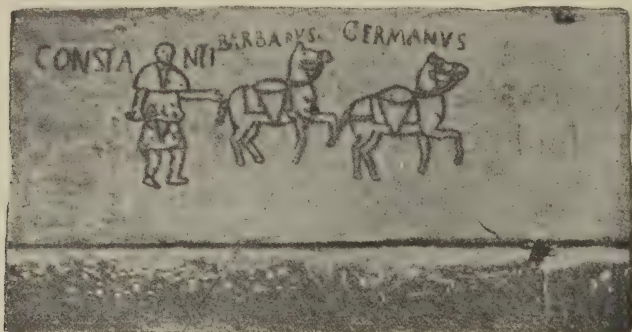 CONSTANTI BARBARVS GERMANVS